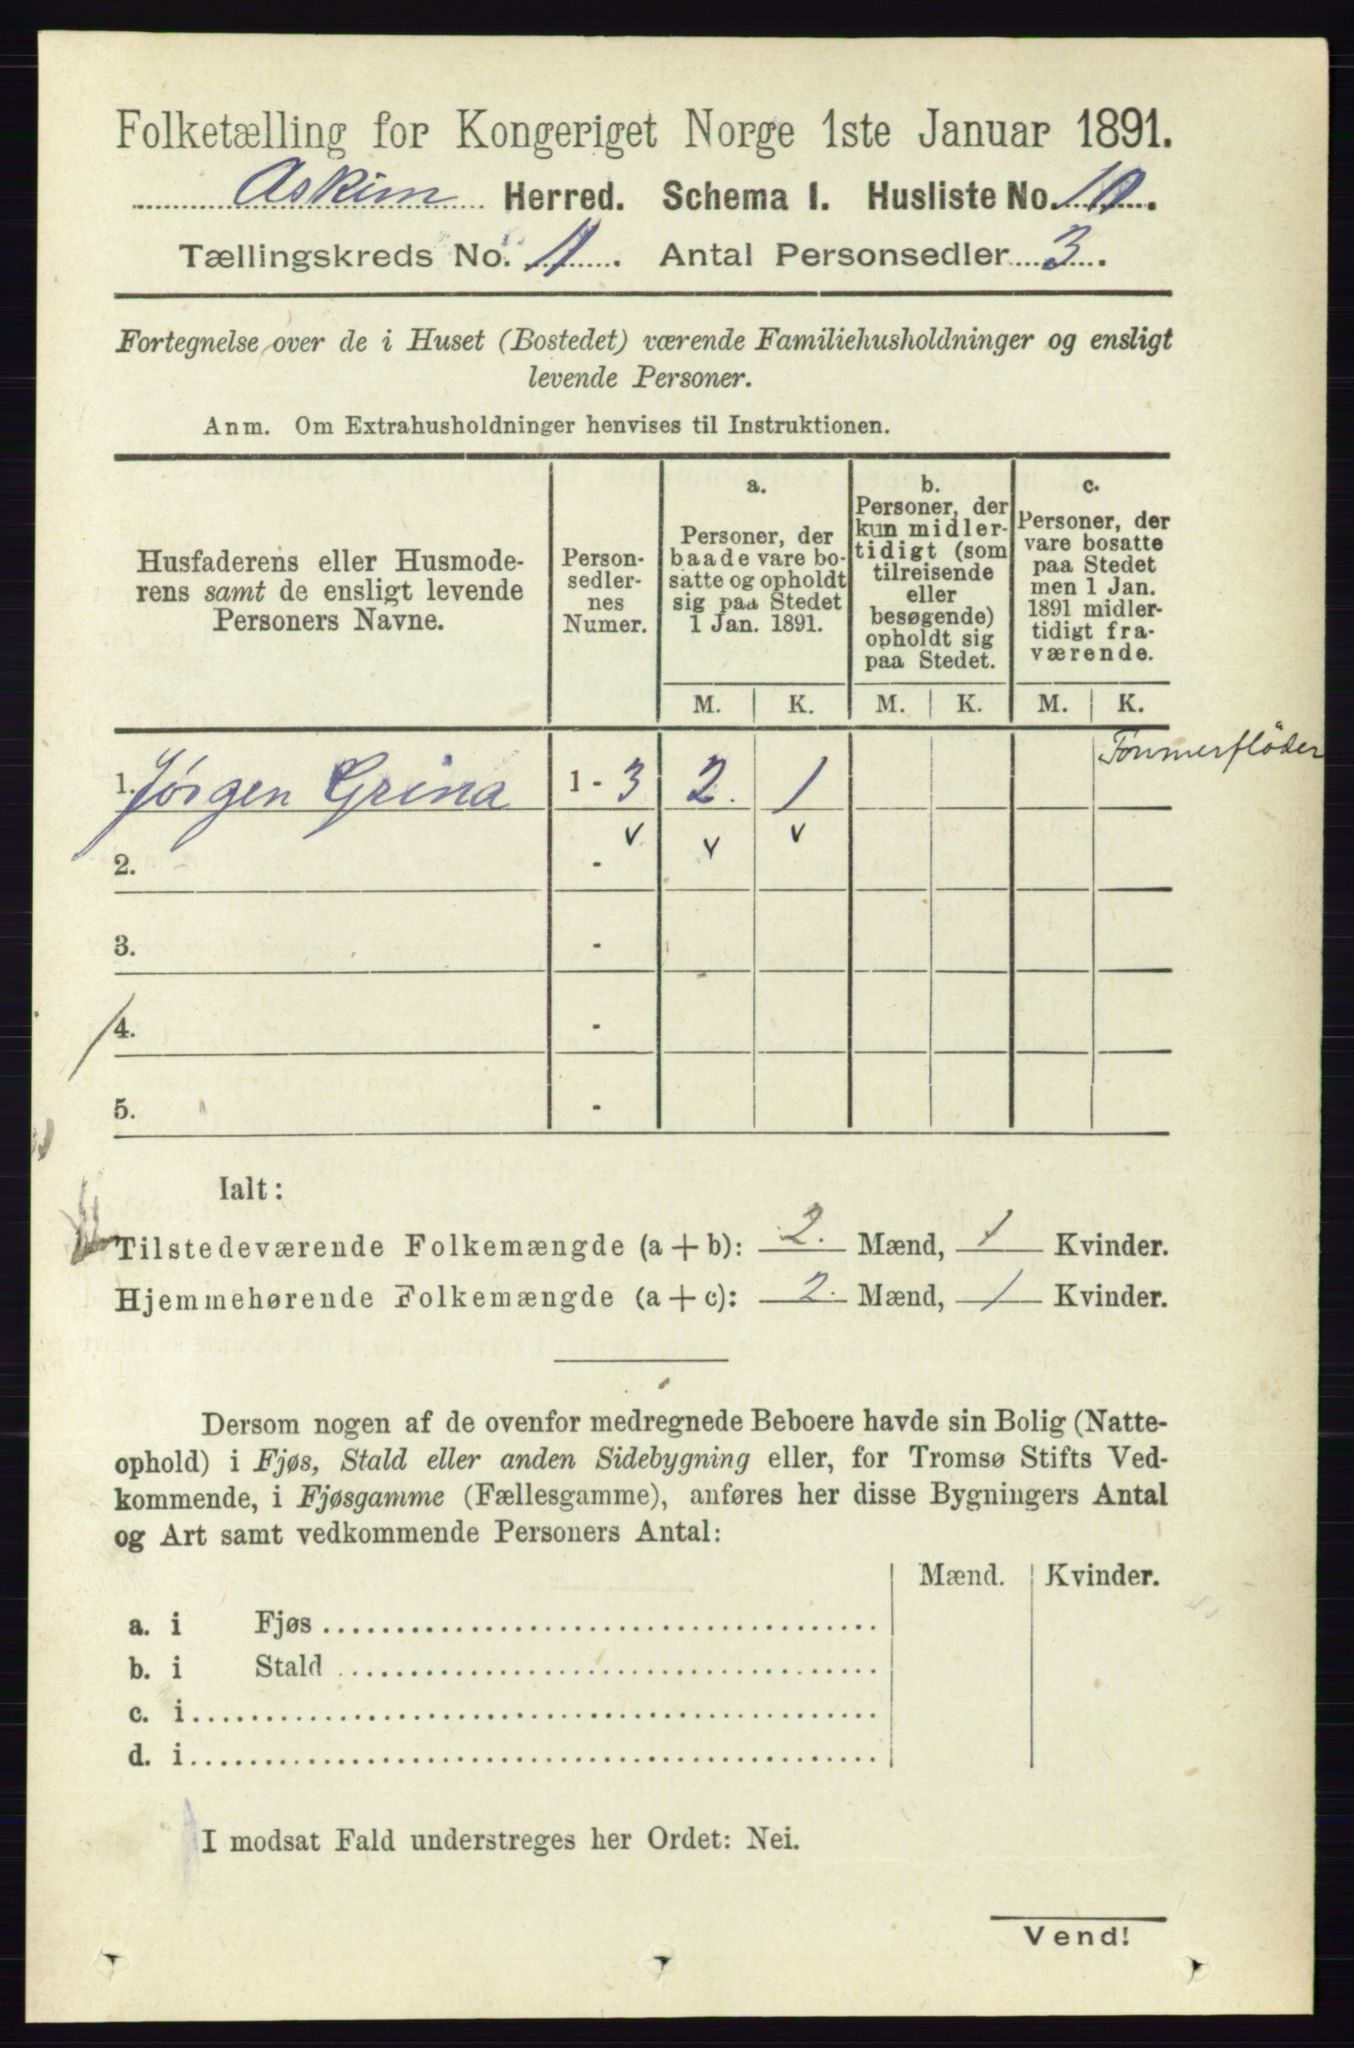 Folketælling for Kongeriget Norge 1ste Januar 1891.
Askim Herred. Schema I. Husliste No. 10.
Tællingskreds No. 11. Antal Personsedler 3.
Fortegnelse over de i Huset (Bostedet) værende Familiehusholdninger og ensligt
levende Personer.
Anm. Om Extrahusholdninger henvises til Instruktionen.
Husfaderens eller Husmode-
rens samt de ensligt levende
Personers Navne.
Person-
sedler-
nes
Numer.
a.
Personer, der
baade vare bo-
satte og opholdt
sig paa Stedet
1 Jan. 1891.
b.
Personer, der
kun midler-
tidigt (som
tilreisende
eller
besøgende)
opholdt sig
paa Stedet.
c.
Personer, der
vare bosatte
paa Stedet
men 1 Jan.
1891 midler-
tidigt fra-
værende.
M. K. M. K. M. K.
Tømmerflöder
1. Jørgen Grina 1 - 3 2. 1
v v v
2. -
3. -
4. -
5. -
Ialt:
Tilstedeværende Folkemængde (a + b): 2. Mænd, 1 Kvinder.
Hjemmehørende Folkemængde (a + c): 2. Mænd, 1 Kvinder.
Dersom nogen af de ovenfor medregnede Beboere havde sin Bolig (Natte-
ophold) i Fjøs, Stald eller anden Sidebygning eller, for Tromsø Stifts Ved-
kommende, i Fjøsgamme (Fællesgamme), anføres her disse Bygningers Antal
og Art samt vedkommende Personers Antal:
Mænd. Kvinder.
a. i Fjøs
b. i Stald
c. i
d. i
I modsat Fald understreges her Ordet: Nei.
Vend!